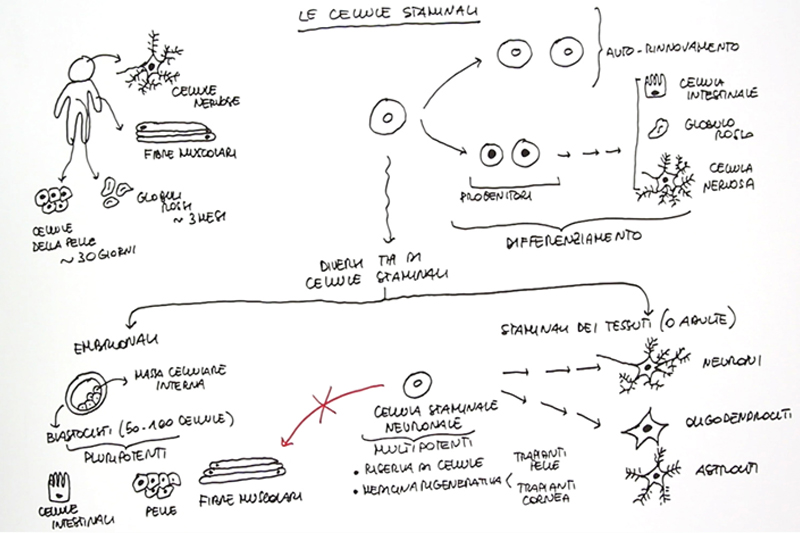 LE CELLULE STAMINALI
CELLULE
NERVOSE
FIBRE MUSCOLARI
GLOBULI
ROSSI
~ 3 MESI
CELLULE
DELLA PELLE
~ 30 GIORNI
AUTO-RINNOVAMENTO
CELLULA
INTESTINALE
GLOBULO
ROSSO
CELLULA
NERVOSA
PROGENITORI
DIFFERENZIAMENTO
DIVERSI TIPI DI
CELLULE STAMINALI
EMBRIONALI
MASSA CELLULARE
INTERNA
BLASTOCISTI (50-100 CELLULE)
PLURIPOTENTI
CELLULE
INTESTINALI
PELLE
FIBRE MUSCOLARI
STAMINALI DEI TESSUTI (O ADULTE)
CELLULA STAMINALE
NEURONALE
MULTIPOTENTI
• RISERVA DI CELLULE
• MEDICINA RIGENERATIVA
TRAPIANTI
PELLE
TRAPIANTI
CORNEA
NEURONI
OLIGODENDROCITI
ASTROCITI